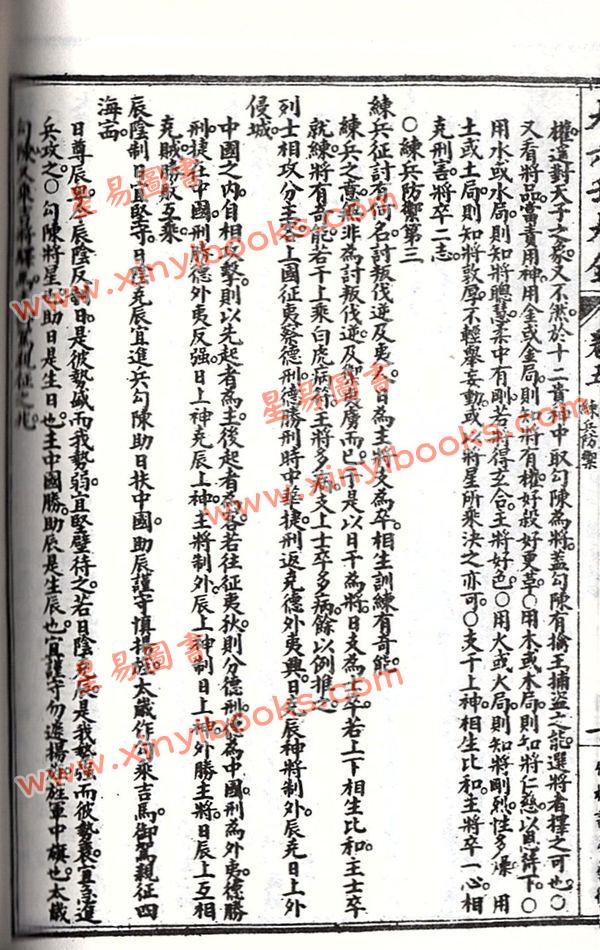 練兵防禦
權達對天子之象又不然於十二貴神中取勾陳為將蓋勾陳有擒王捕盜之能選將者擇之可也○
又看將品當責用神用金或金局則知將有權好殺好更革○用木或木局則知將仁慈以恩待下○
用水或水局則知將聰慧柔中有剛若得玄合主將好色○用火或火局則知將剛烈性多燥○用
土或土局則知將敦厚不輕舉妄動或以將星所乘決之亦可○支干上神相生比和主將卒一心相
克刑害將卒二志
○練兵防禦第三
練兵征討有何名討叛伐逆及夷人日為主將支為卒相生訓練有奇能
練兵之意無非為討叛伐逆及禦夷虜而已于是以日干為將日支為士卒若上下相生比和主士卒
就練將有奇能若干上乘白虎病符主將多病支上士卒多病餘以例推之
列士相攻分主客上國征夷察德刑德勝刑時中華捷刑返克德外夷興日克辰神將制外辰克日上外
侵城
中國之內自相攻擊則以先起者為主後起者為客若往征夷狄則分德刑德為中國刑為外夷德勝
刑捷在中國刑勝德外夷反强日上神克辰上神主將制外辰上神制日上神外勝主將日辰上互相
克賊勝敗互乘
辰陰制日宜堅守日陰克辰宜進兵勾陳助日扶中國助辰謹守慎揚旌太歲作勾乘吉馬御駕親征四
海宙
日尊辰卑若辰陰反尅日是彼勢盛而我勢弱宜堅壁待之若日陰克辰是我勢强而彼勢衰宜急進
兵攻之○勾陳將星 助日是生日也主中國勝助辰是生辰也宜謹守勿遽揚旌旌軍中旗也太歲
勾陳又乘吉將驛馬 駕親征之兆